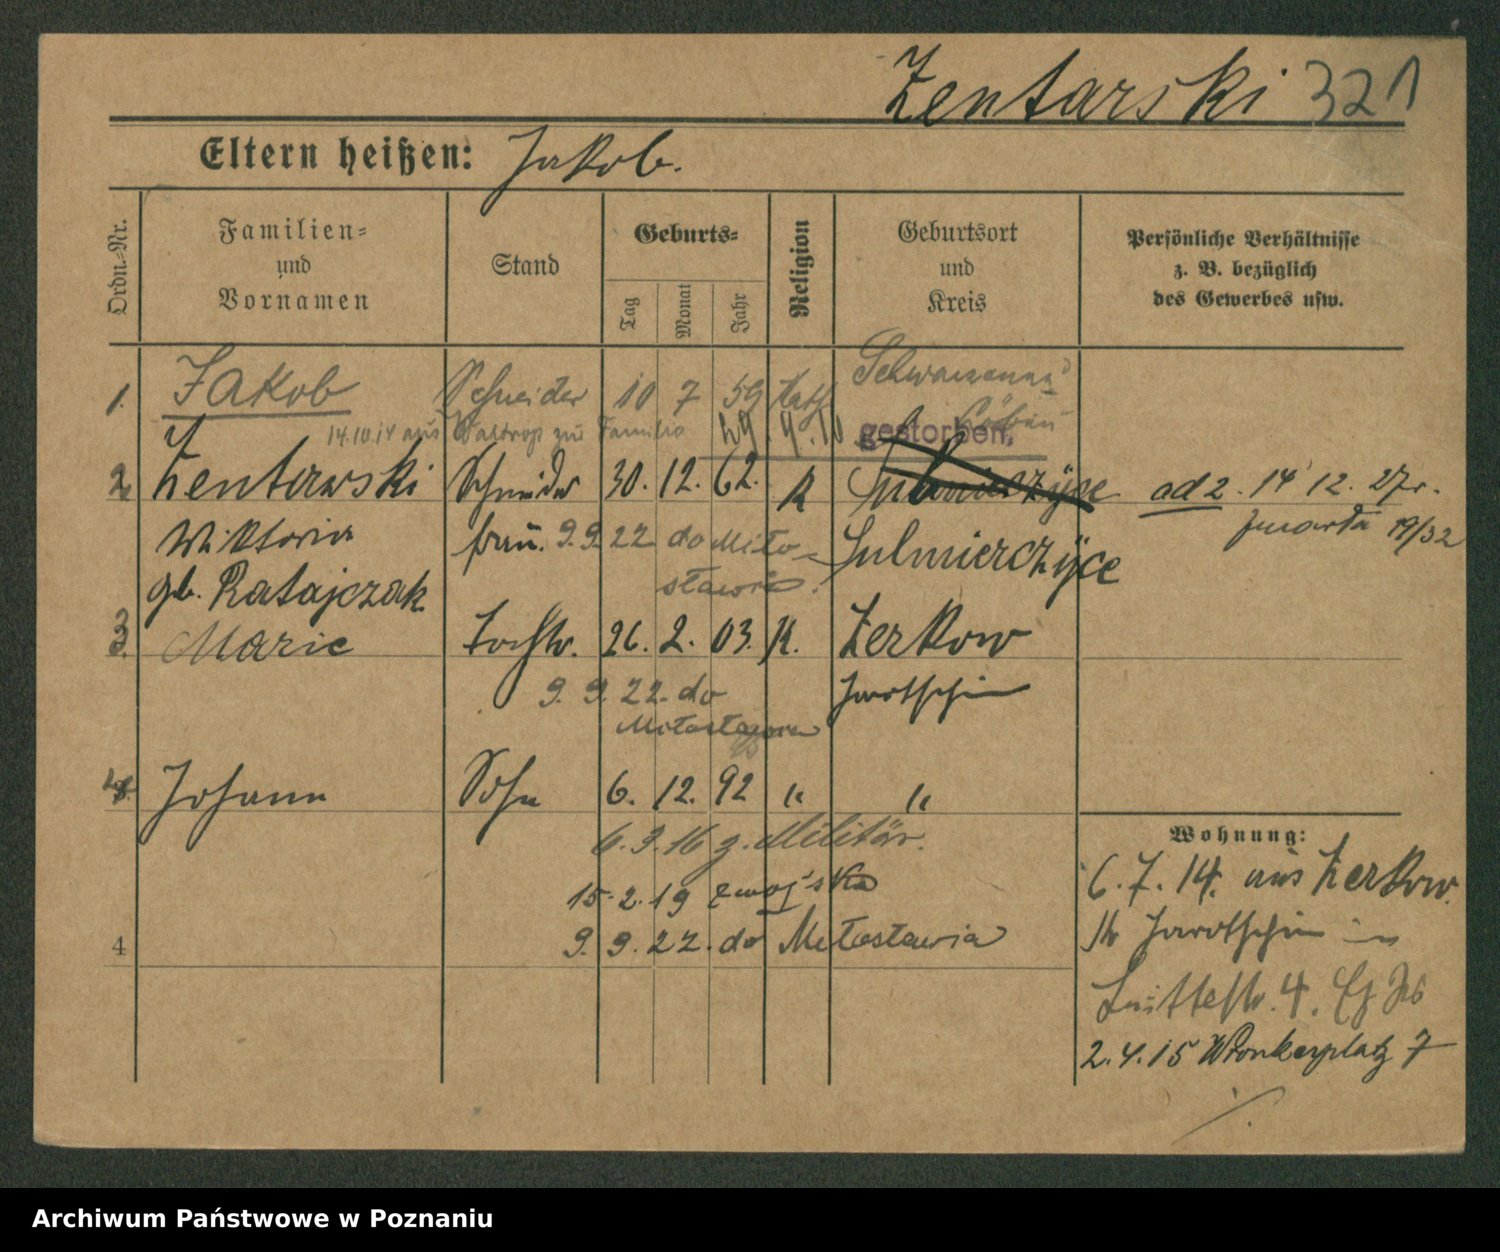 Zentarski 321
Eltern heißen: Jakob.
Ordn.-Nr.
Familien-
und
Vornamen
Stand
Geburts-
Tag
Monat
Jahr
Religion
Geburtsort
und
Kreis
Persönliche Verhältnisse
z. B. bezüglich
des Gewerbes usw.
1. Jakob Schneider 10 7 59 kath
14.10.14 aus Waltrop zur Familie 29.4.20 gestorben,
2 Zentarski Schneider 30. 12. 62. K ad 2. 14 12. 27 r.
zmarła 19/32
Wiktoria frau. 9.9 22 do Miło- Sulmierczyce
sławia.
gb. Ratajczak
3. Marie Tochtr. 26. 2. 03. K. Zerkow
9. 9. 22. do Jarotschin
Miłosławia
4. Johann Sohn 6. 12. 92 " "
6.3.16 z. Militär.
15.2.19 z wojska
4 9. 9. 22. do Miłosławia
Wohnung:
6.7.14. aus Zerkow.
Kr Jarotschin in
4.
2.4.15 Wronkerplatz 7